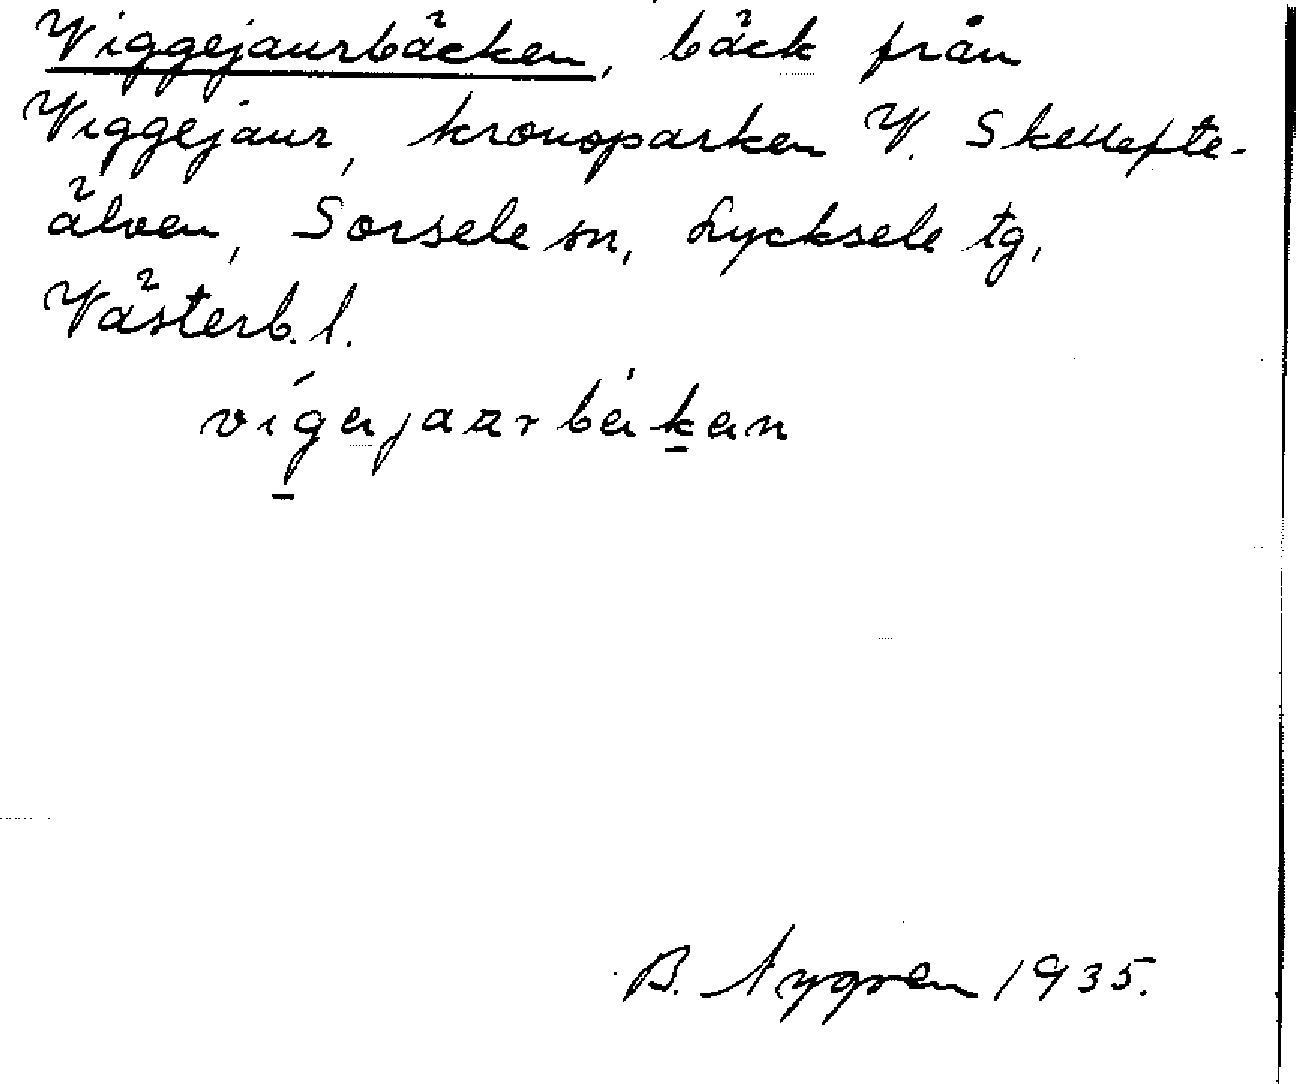 Viggejaurbäcken, bäck från
Viggejaur, kronoparken V. Skellefte-
älven, Sorsele sn, Lycksele tg,
Västerb. l.
B. Nygren 1935.